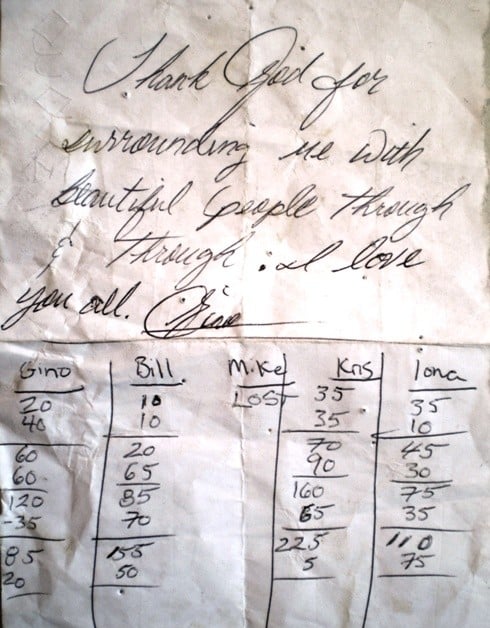 Thank God for
surrounding me with
beautiful people through
& through. I love
you all. Gino
Gino Bill Mike Kris Iona
20 10 LOST 35 35
40 10 35 10
60 20 70 45
60 65 90 30
120 85 160 75
-35 70 65 35
85 155 225 110
20 50 5 75